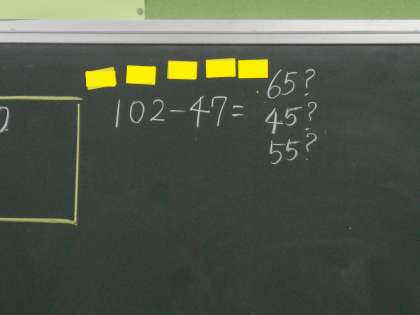 102-47=
65?
45?
55?